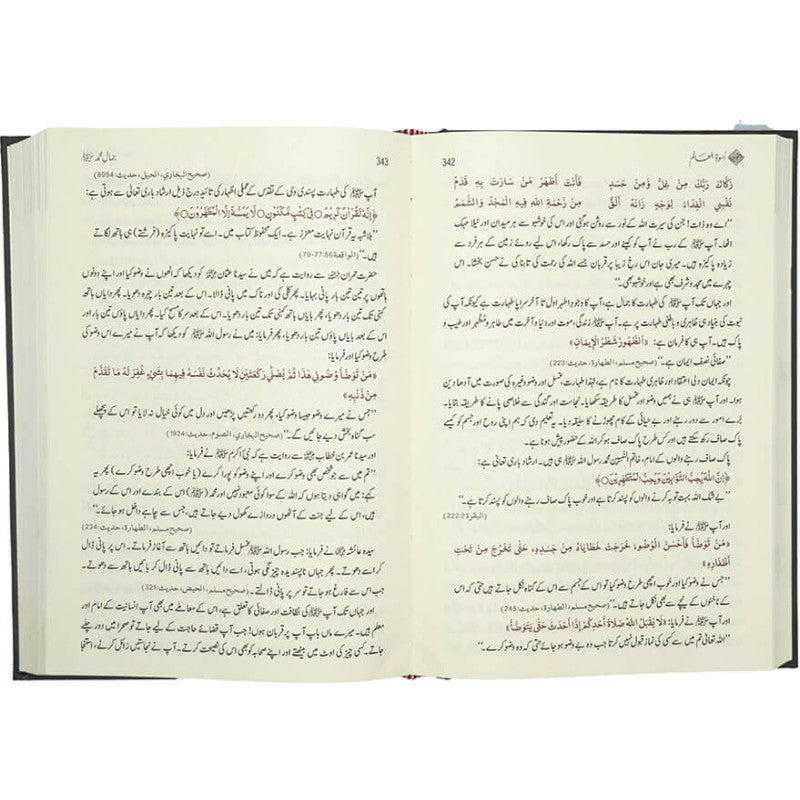 342
اسوۃ العالم
زَكَّاكَ رَبُّكَ مِنْ غِلٍّ وَّمِنْ حَسَدٍ فَأَنْتَ أَطْهَرُ مَنْ سَارَتْ بِهِ قَدَمُ
نَفْسِي الْفِدَاءُ لِوَجْهٍ زَانَهُ أَلَقٌ مِنْ رَحْمَةِ اللّٰهِ فِيهِ الْمَجْدُ وَالشَّمَمُ
”اے وہ ذات! جن کی سیرت اللہ کے نور سے روشن ہو گئی اور اس کی خوشبو سے ہر میدان اور ٹیلا مہک
اٹھا۔ آپ ﷺ کے رب نے آپ کو کینے اور حسد سے پاک رکھا، اس لیے روئے زمین کے ہر فرد سے
زیادہ پاکیزہ ہیں۔ میری جان اس رخ زیبا پر قربان جسے اللہ کی رحمت کی تابانی نے حسن بخشا۔ اس
چہرے میں مجد و شرف بھی ہے اور خوشبو بھی۔“
اور جہاں تک آپ ﷺ کی طہارت کا جمال ہے، آپ کا وجود اطہر اول تا آخر سراپا طہارت ہے کیونکہ آپ کی
نبوت کی بنیاد ہی ظاہری و باطنی طہارت پر ہے۔ آپ ﷺ زندگی، موت اور دنیا و آخرت میں طاہر و مطہر اور طیب و
پاک ہیں۔ آپ ہی کا فرمان ہے: «اَلطُّهُورُ شَطْرُ الْإِيمَانِ»
”صفائی نصف ایمان ہے۔“ (صحیح مسلم، الطھارۃ، حدیث: 223)
چونکہ ایمان دلی اعتقاد اور ظاہری طہارت کا نام ہے، لہٰذا طہارت، غسل اور وضو وغیرہ کی صورت میں آدھا دین
ہوا۔ اور آپ ﷺ ہی نے ہمیں وضو اور غسل کا طریقہ سکھایا۔ نجاست اور گندگی سے خلاصی پانے کا طریقہ بتایا۔
برے امور سے دور رہنے اور بے حیائی کے کام چھوڑنے کا سلیقہ دیا۔ یہ تعلیم دی کہ ہم اپنی روح اور جسم کو کیسے
پاک صاف رکھ سکتے ہیں اور کس طرح پاک و صاف ہو کر اللہ کے حضور پیش ہونا ہے۔
پاک صاف رہنے والوں کے امام، خاتم النبیین محمد رسول اللہ ﷺ ہی ہیں۔ ارشاد باری تعالیٰ ہے:
﴿إِنَّ اللّٰهَ يُحِبُّ التَّوَّابِيْنَ وَيُحِبُّ الْمُتَطَهِّرِيْنَ﴾
”بے شک اللہ بہت توبہ کرنے والوں کو پسند کرتا ہے اور خوب پاک صاف رہنے والوں کو پسند کرتا ہے۔“
(البقرۃ 2:222)
اور آپ ﷺ نے فرمایا:
«مَنْ تَوَضَّأَ فَأَحْسَنَ الْوُضُوءَ، خَرَجَتْ خَطَايَاهُ مِنْ جَسَدِهِ، حَتّٰى تَخْرُجَ مِنْ تَحْتِ
أَظْفَارِهِ»
”جس نے وضو کیا اور خوب اچھی طرح وضو کیا تو اس کے جسم سے اس کے گناہ نکل جاتے ہیں حتی کہ اس
کے ناخنوں کے نیچے سے بھی نکل جاتے ہیں۔“ (صحیح مسلم، الطھارۃ، حدیث: 245)
اور آپ ﷺ نے فرمایا: «لَا يَقْبَلُ اللّٰهُ صَلَاةَ أَحَدِكُمْ إِذَا أَحْدَثَ حَتّٰى يَتَوَضَّأَ»
”اللہ تعالیٰ تم میں سے کسی کی نماز قبول نہیں کرتا جب وہ بے وضو ہو جائے حتی کہ وہ وضو کرے۔“
343
جمال محمد ﷺ
(صحیح البخاري، الحیل، حدیث: 6954)
آپ ﷺ کی طہارت پسندی وحی کے تقدس کے عملی اظہار کی تائید درج ذیل ارشاد باری تعالیٰ سے ہوتی ہے:
﴿إِنَّهٗ لَقُرْاٰنٌ كَرِيْمٌ○ فِيْ كِتٰبٍ مَّكْنُوْنٍ○ لَّا يَمَسُّهٗٓ إِلَّا الْمُطَهَّرُوْنَ○﴾
”بلاشبہ یہ قرآن نہایت معزز ہے۔ ایک محفوظ کتاب میں۔ اسے تو نہایت پاکیزہ (فرشتے) ہی ہاتھ لگاتے
ہیں۔“ (الواقعۃ 56:77-79)
حضرت حمران ﷫ سے روایت ہے کہ میں نے سیدنا عثمان ﷜ کو دیکھا کہ انھوں نے وضو کیا اور اپنے دونوں
ہاتھوں پر تین تین بار پانی بہایا۔ پھر کلی کی اور ناک میں پانی ڈالا۔ اس کے بعد تین بار چہرہ دھویا۔ پھر دایاں ہاتھ
کہنی تک تین بار دھویا، پھر بایاں ہاتھ کہنی تک تین بار دھویا۔ اس کے بعد سر کا مسح کیا۔ پھر دایاں پاؤں تین بار اور
اس کے بعد بایاں پاؤں تین بار دھویا، پھر فرمایا: میں نے رسول اللہ ﷺ کو دیکھا کہ آپ نے میرے اس وضو کی
طرح وضو کیا اور فرمایا:
«مَنْ تَوَضَّأَ وُضُوئِي هٰذَا ثُمَّ يُصَلِّي رَكْعَتَيْنِ لَا يُحَدِّثُ نَفْسَهُ فِيهِمَا بِشَيْءٍ غُفِرَ لَهُ مَا تَقَدَّمَ
مِنْ ذَنْبِهِ»
”جس نے میرے وضو جیسا وضو کیا، پھر دو رکعتیں پڑھیں اور دل میں کوئی خیال نہ لایا تو اس کے پچھلے
سب گناہ بخش دیے جائیں گے۔“ (صحیح البخاري، الصوم، حدیث: 1934)
اور سیدنا عمر بن خطاب ﷜ سے روایت ہے کہ نبی اکرم ﷺ نے فرمایا:
”تم میں سے جو شخص بھی وضو کرے اور اپنے وضو کو پورا کرے (یا خوب اچھی طرح وضو کرے) پھر یہ
کہے: میں گواہی دیتا ہوں کہ اللہ کے سوا کوئی معبود نہیں اور محمد (ﷺ) اس کے بندے اور اس کے رسول
ہیں، اس کے لیے جنت کے آٹھوں دروازے کھول دیے جاتے ہیں، جس سے چاہے داخل ہو جائے۔“
(صحیح مسلم، الطھارۃ، حدیث: 234)
سیدہ عائشہ ﷞ نے فرمایا: جب رسول اللہ ﷺ غسل فرماتے تو دائیں ہاتھ سے آغاز فرماتے۔ اس پر پانی ڈال
کر اسے دھوتے۔ پھر جہاں ناپسندیدہ چیز لگی ہوتی، اسے دائیں ہاتھ سے پانی ڈال کر بائیں ہاتھ سے دھوتے۔
جب اس سے فارغ ہو جاتے تو سر پر پانی ڈالتے۔ (صحیح مسلم، الحیض، حدیث: 321)
اور جہاں تک آپ ﷺ کی نظافت اور صفائی کا تعلق ہے، اس کے معاملے میں بھی آپ انسانیت کے امام اور
معلم ہیں۔ میرے ماں باپ آپ پر قربان ہوں! جب آپ قضائے حاجت کے لیے جاتے تو صحرا میں دور چلے
جاتے۔ کسی چیز کی اوٹ میں بیٹھتے اور اپنے صحابہ کو بھی اس کی نصیحت کرتے۔ آپ نے نجاستیں زائل کرنے، استنجا